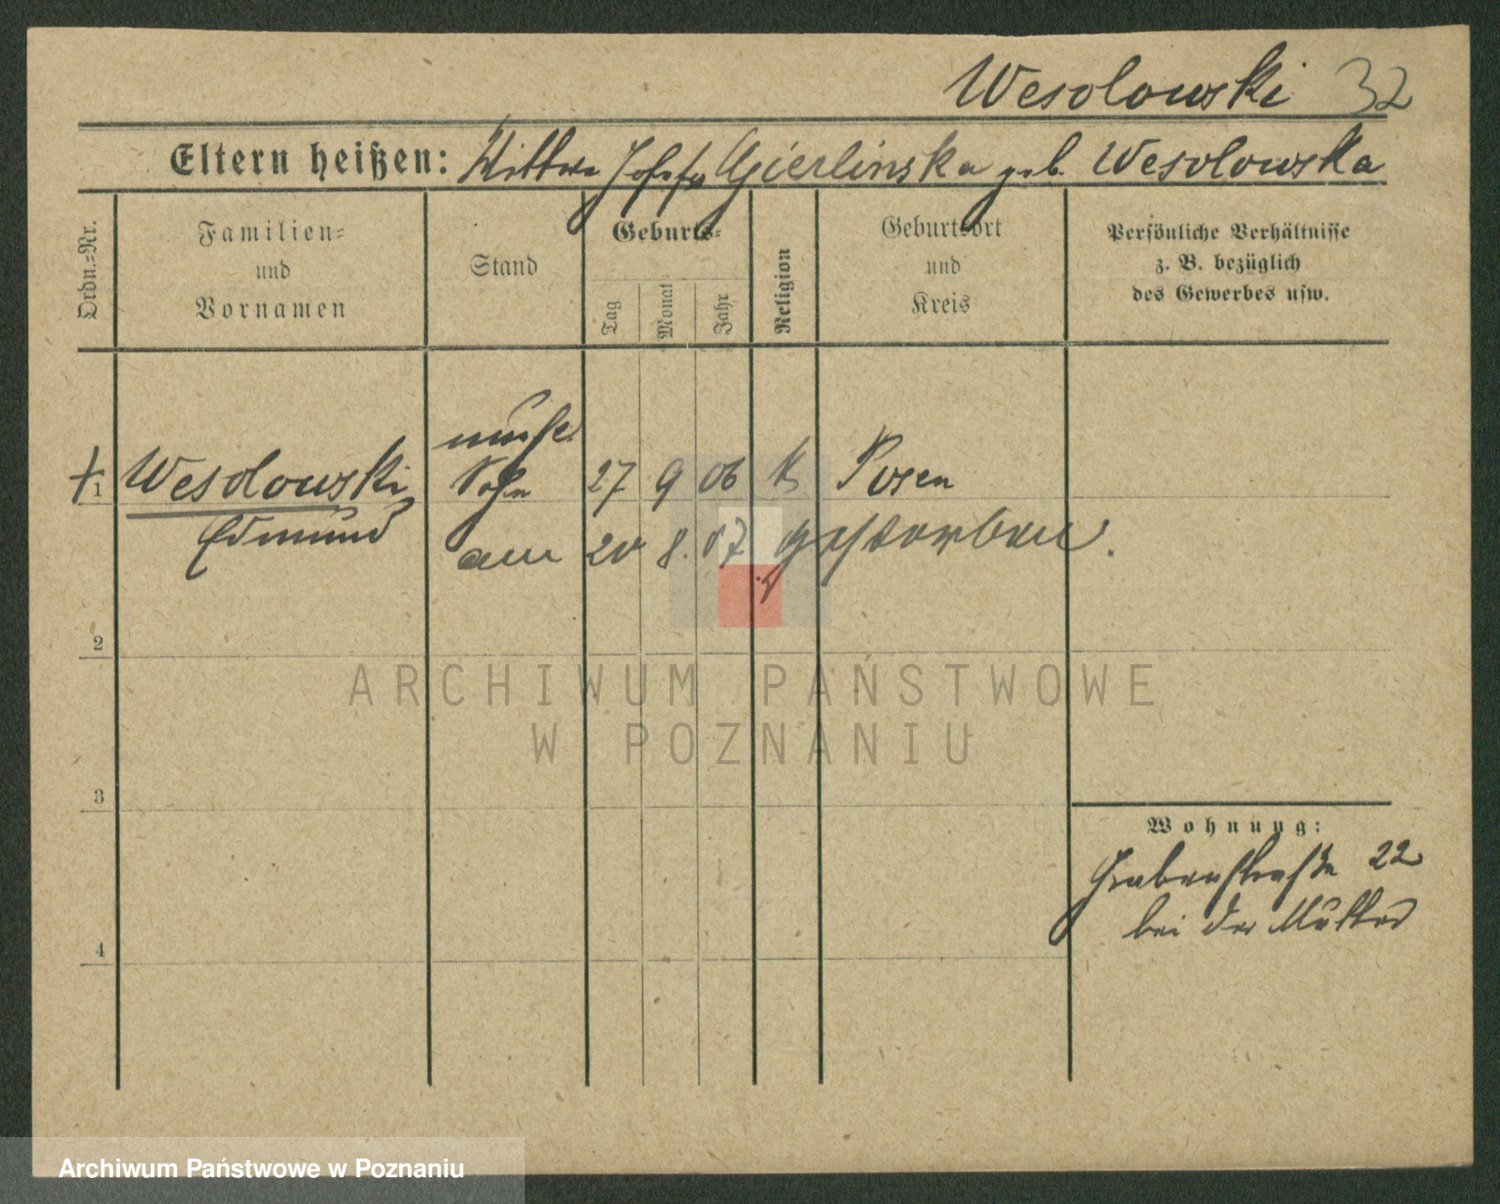 Wesolowski 32
Eltern heißen: Wittwe Josefa Gierlinska geb. Wesolowska
Ordn.-Nr.
Familien-
und
Vornamen
Stand
Geburts-
Tag
Monat
Jahr
Religion
Geburtsort
und
Kreis
Persönliche Verhältnisse
z. B. bezüglich
des Gewerbes usw.
unehe.
1 Wesolowski, Sohn 27 9 06 k Posen
Edmund am 20 8. 07 gestorben.
2
3
4
Wohnung:
Grabenstraße 22
bei der Mutter
ARCHIWUM PAŃSTWOWE
W POZNANIU
Archiwum Państwowe w Poznaniu